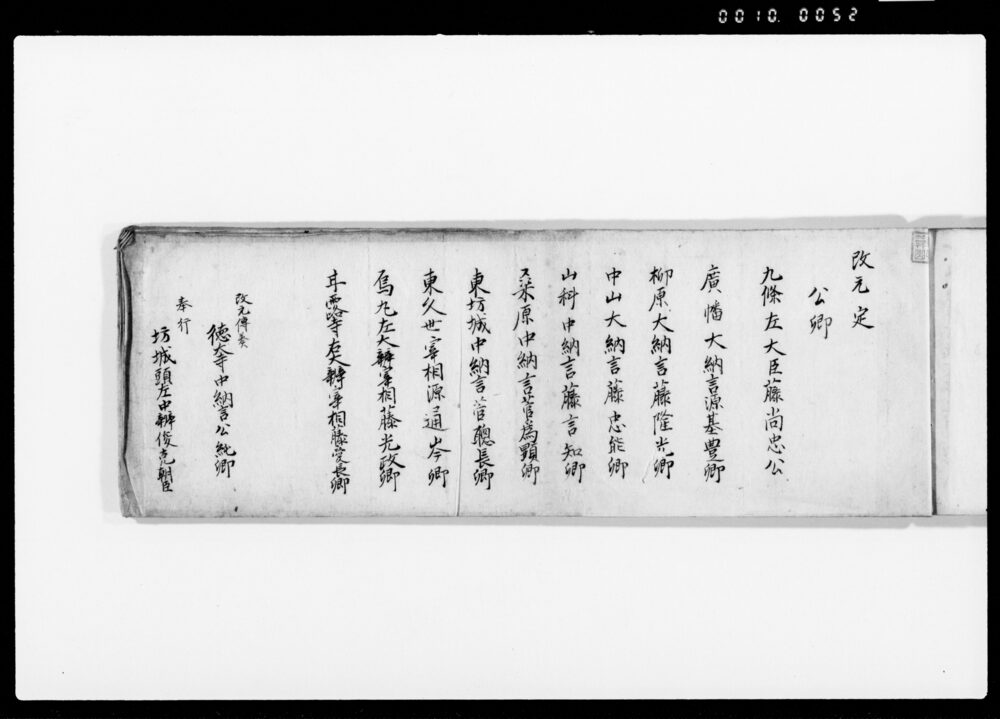 0010. 0052
改元定
公卿
九條左大臣藤尚忠公
廣幡大納言源基豊卿
柳原大納言藤隆光卿
中山大納言藤忠能卿
山科中納言藤言知卿
桒原中納言菅為顕卿
東坊城中納言菅聰長卿
東久世宰相源通岑卿
烏丸左大辨宰相藤光政卿
甘露寺右大辨宰相藤愛長卿
改元傳奏
徳大寺中納言公純卿
奉行
坊城頭左中辨俊克朝臣